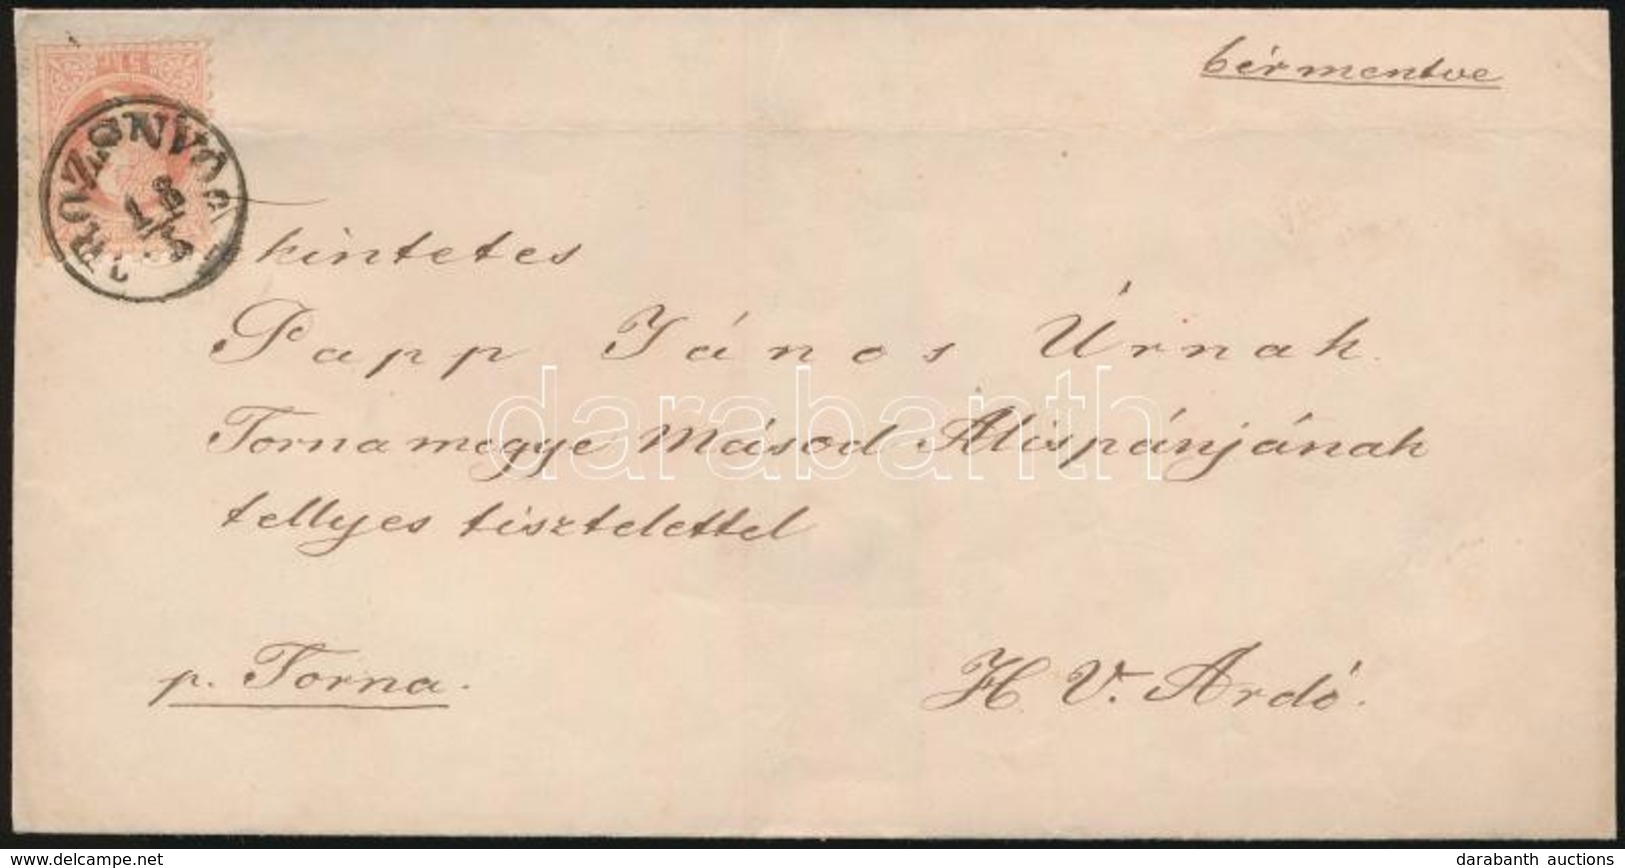 bérmentve
5 kr
ROZSNYÓ
18/5
Tekintetes
Papp János Úrnak
Tornamegye Másod Alispánjának
tellyes tisztelettel
p. Torna.
H. V. Ardó.
darabanth
www.delcampe.net
darabanth auctions